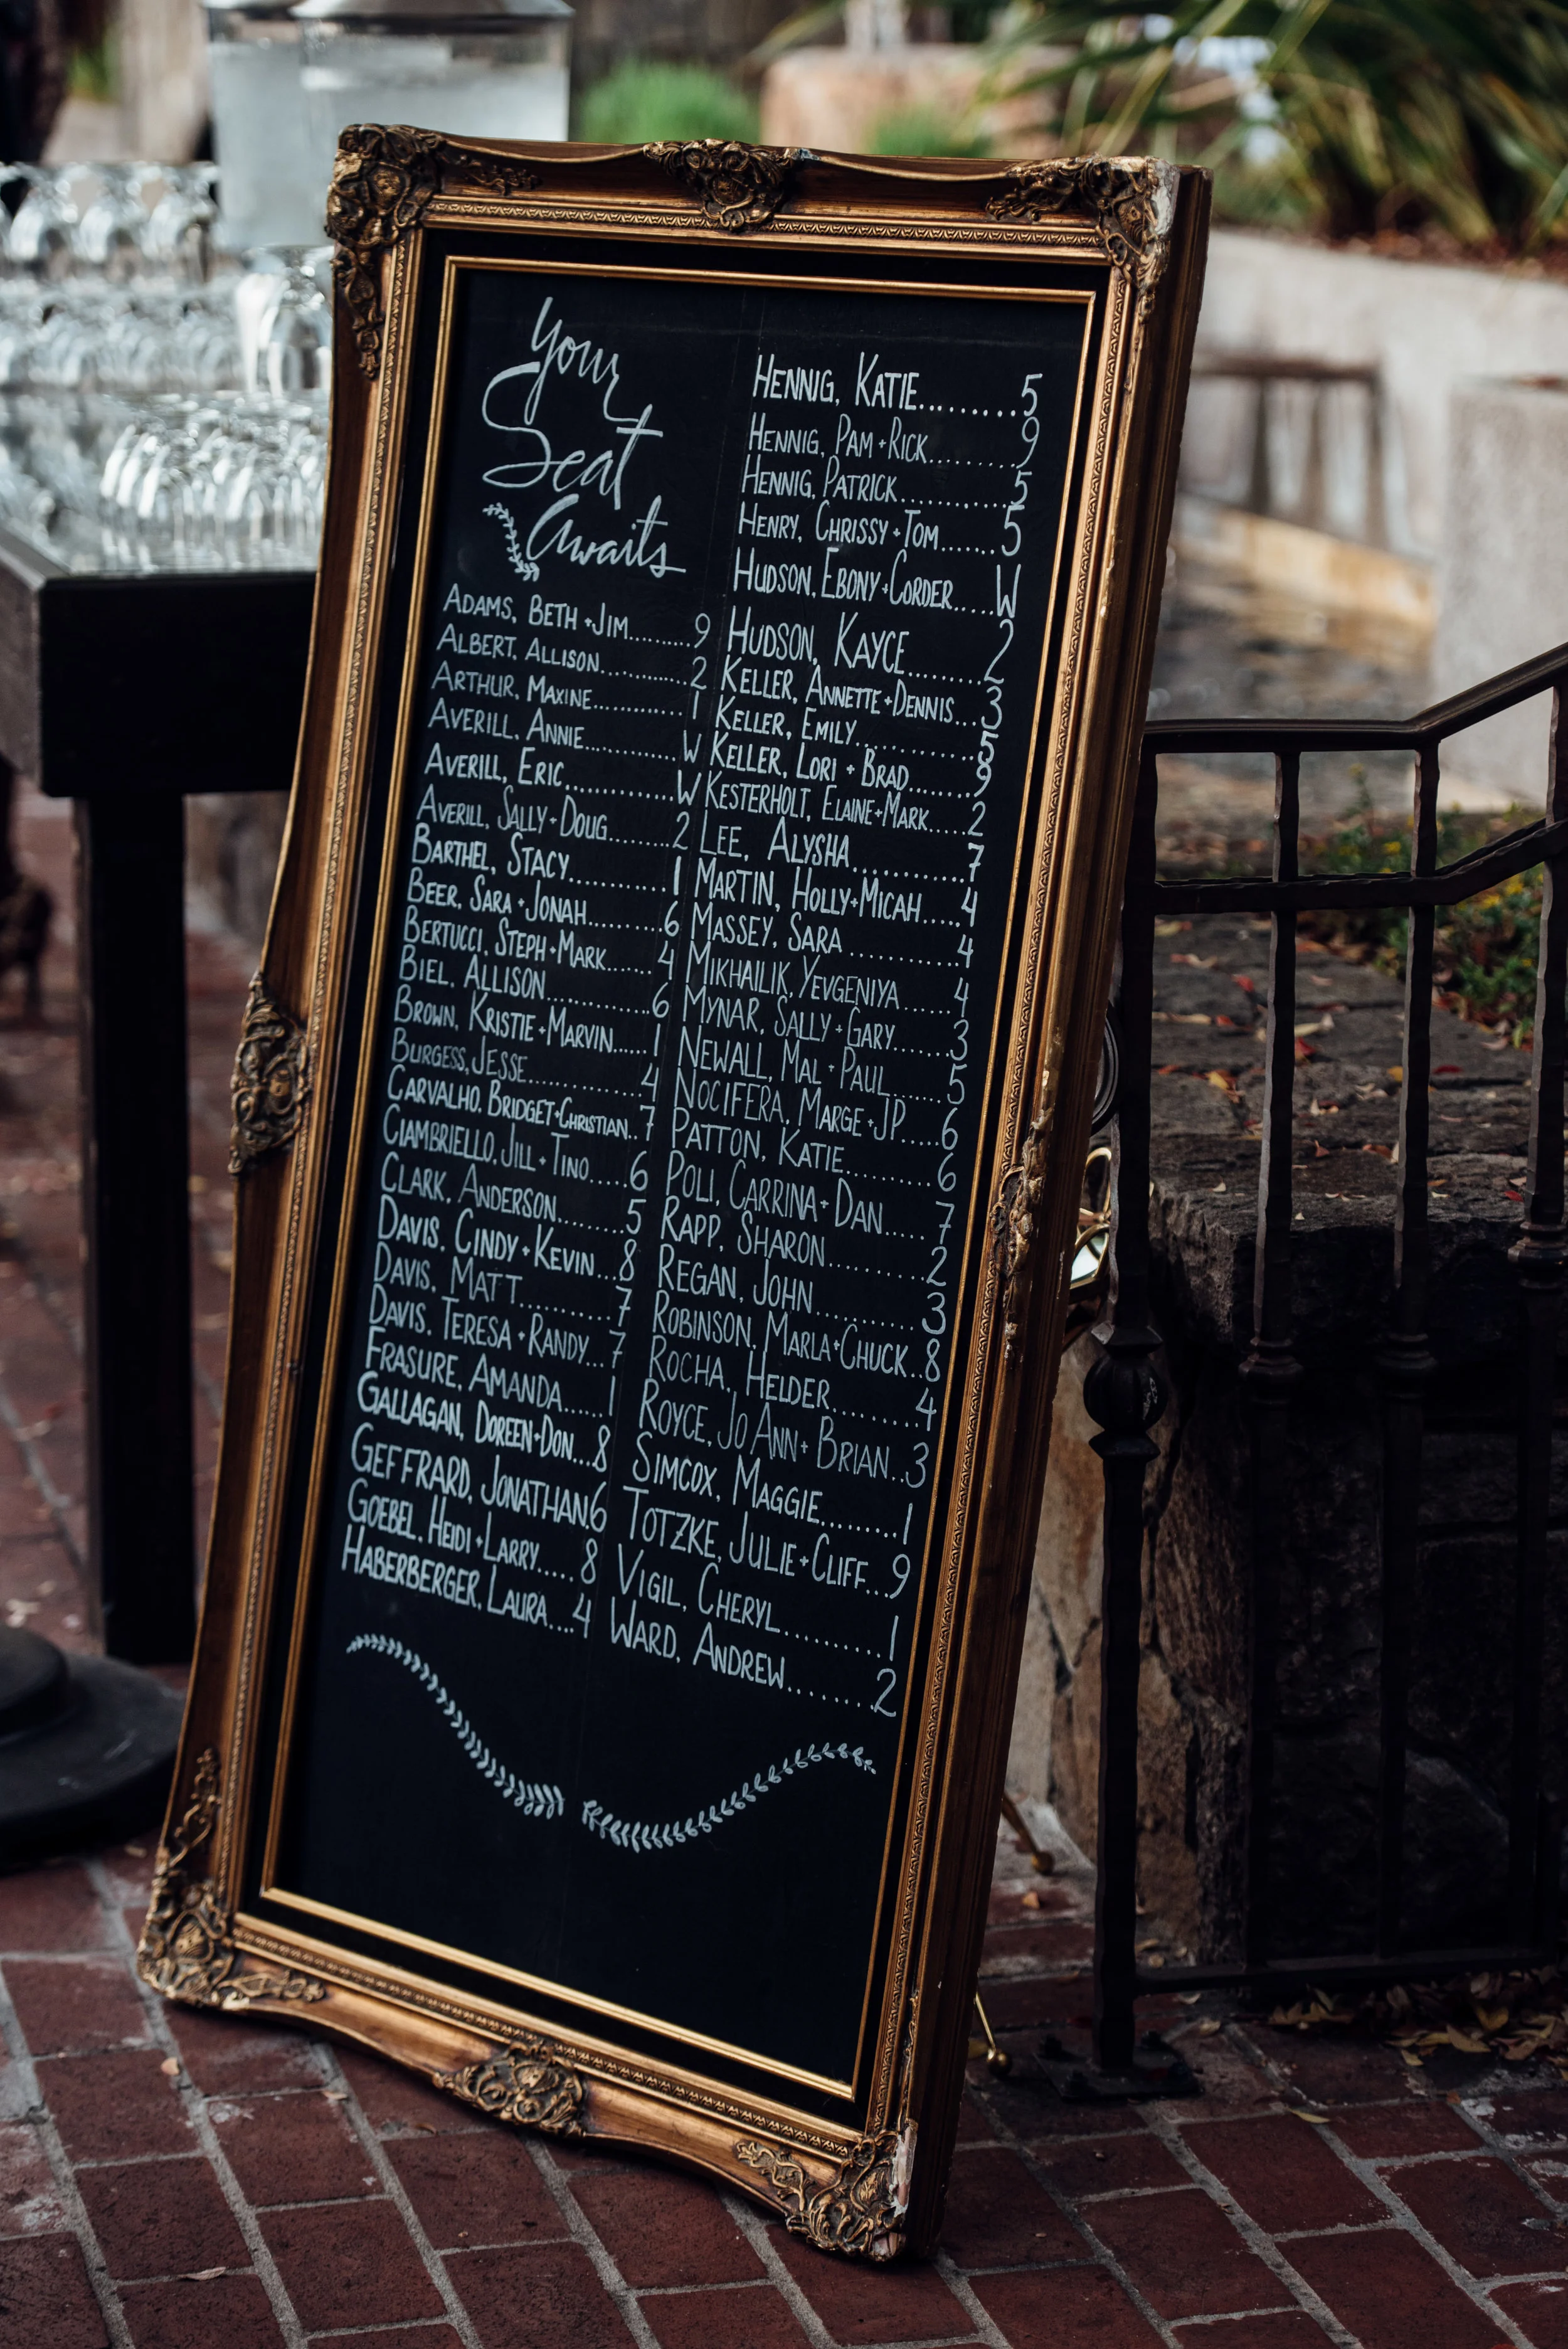 Your
Seat
Awaits
ADAMS, BETH + JIM........9
ALBERT, ALLISON..............2
ARTHUR, MAXINE..............1
AVERILL, ANNIE..............W
AVERILL, ERIC..............W
AVERILL, SALLY + DOUG........2
BARTHEL, STACY............1
BEER, SARA + JONAH.........6
BERTUCCI, STEPH + MARK......4
BIEL, ALLISON............6
BROWN, KRISTIE + MARVIN.....1
BURGESS, JESSE..............4
CARVALHO, BRIDGET + CHRISTIAN..7
CIAMBRIELLO, JILL + TINO.....6
CLARK, ANDERSON........5
DAVIS, CINDY + KEVIN...8
DAVIS, MATT...........7
DAVIS, TERESA + RANDY...7
FRASURE, AMANDA......1
GALLAGAN, DOREEN + DON...8
GEFFRARD, JONATHAN.6
GOEBEL, HEIDI + LARRY.....8
HABERBERGER, LAURA....4
HENNIG, KATIE.........5
HENNIG, PAM + RICK.........9
HENNIG, PATRICK............5
HENRY, CHRISSY + TOM......5
HUDSON, EBONY + CORDER....W
HUDSON, KAYCE.........2
KELLER, ANNETTE + DENNIS...3
KELLER, EMILY.............5
KELLER, LORI + BRAD.......9
KESTERHOLT, ELAINE + MARK....2
LEE, ALYSHA............7
MARTIN, HOLLY + MICAH....4
MASSEY, SARA............4
MIKHAILIK, YEVGENIYA.....4
MYNAR, SALLY + GARY.......3
NEWALL, MAL + PAUL.......5
NOCIFERA, MARGE + JP.....6
PATTON, KATIE.........6
POLI, CARRINA + DAN.....7
RAPP, SHARON..........2
REGAN, JOHN...........3
ROBINSON, MARLA + CHUCK..8
ROCHA, HELDER.........4
ROYCE, JO ANN + BRIAN..3
SIMCOX, MAGGIE.........1
TOTZKE, JULIE + CLIFF...9
VIGIL, CHERYL..........1
WARD, ANDREW........2